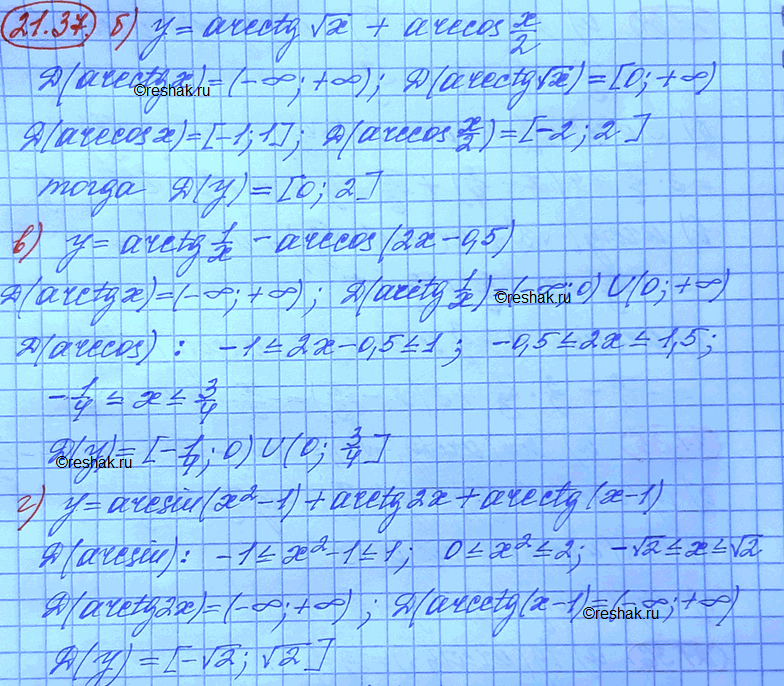 21.37. б) y = arcctg √x + arccos x/2
D(arcctg x) = (-∞; +∞); D(arcctg √x) = [0; +∞)
©reshak.ru
D(arccos x) = [-1; 1]; D(arccos x/2) = [-2; 2]
тогда D(y) = [0; 2]
в) y = arctg 1/x - arccos(2x - 0,5)
D(arctg x) = (-∞; +∞); D(arctg 1/x) = (-∞; 0) ∪ (0; +∞)
©reshak.ru
D(arccos): -1 ≤ 2x - 0,5 ≤ 1; -0,5 ≤ 2x ≤ 1,5;
-1/4 ≤ x ≤ 3/4
D(y) = [-1/4; 0) ∪ (0; 3/4]
©reshak.ru
г) y = arcsin(x² - 1) + arctg 2x + arcctg (x - 1)
D(arcsin): -1 ≤ x² - 1 ≤ 1; 0 ≤ x² ≤ 2; -√2 ≤ x ≤ √2
D(arctg 2x) = (-∞; +∞); D(arcctg (x - 1) = (-∞; +∞)
©reshak.ru
D(y) = [-√2; √2]